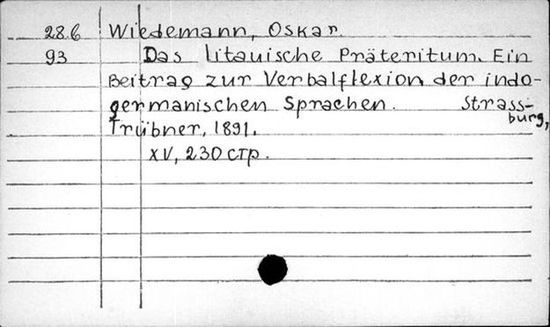 28.6 Wiedemann, Oskar.
93 Das litauische Präteritum. Ein
Beitrag zur Verbalflexion der indo-
germanischen Sprachen. Strass-
burg,
Trübner, 1891.
XV, 230 стр.